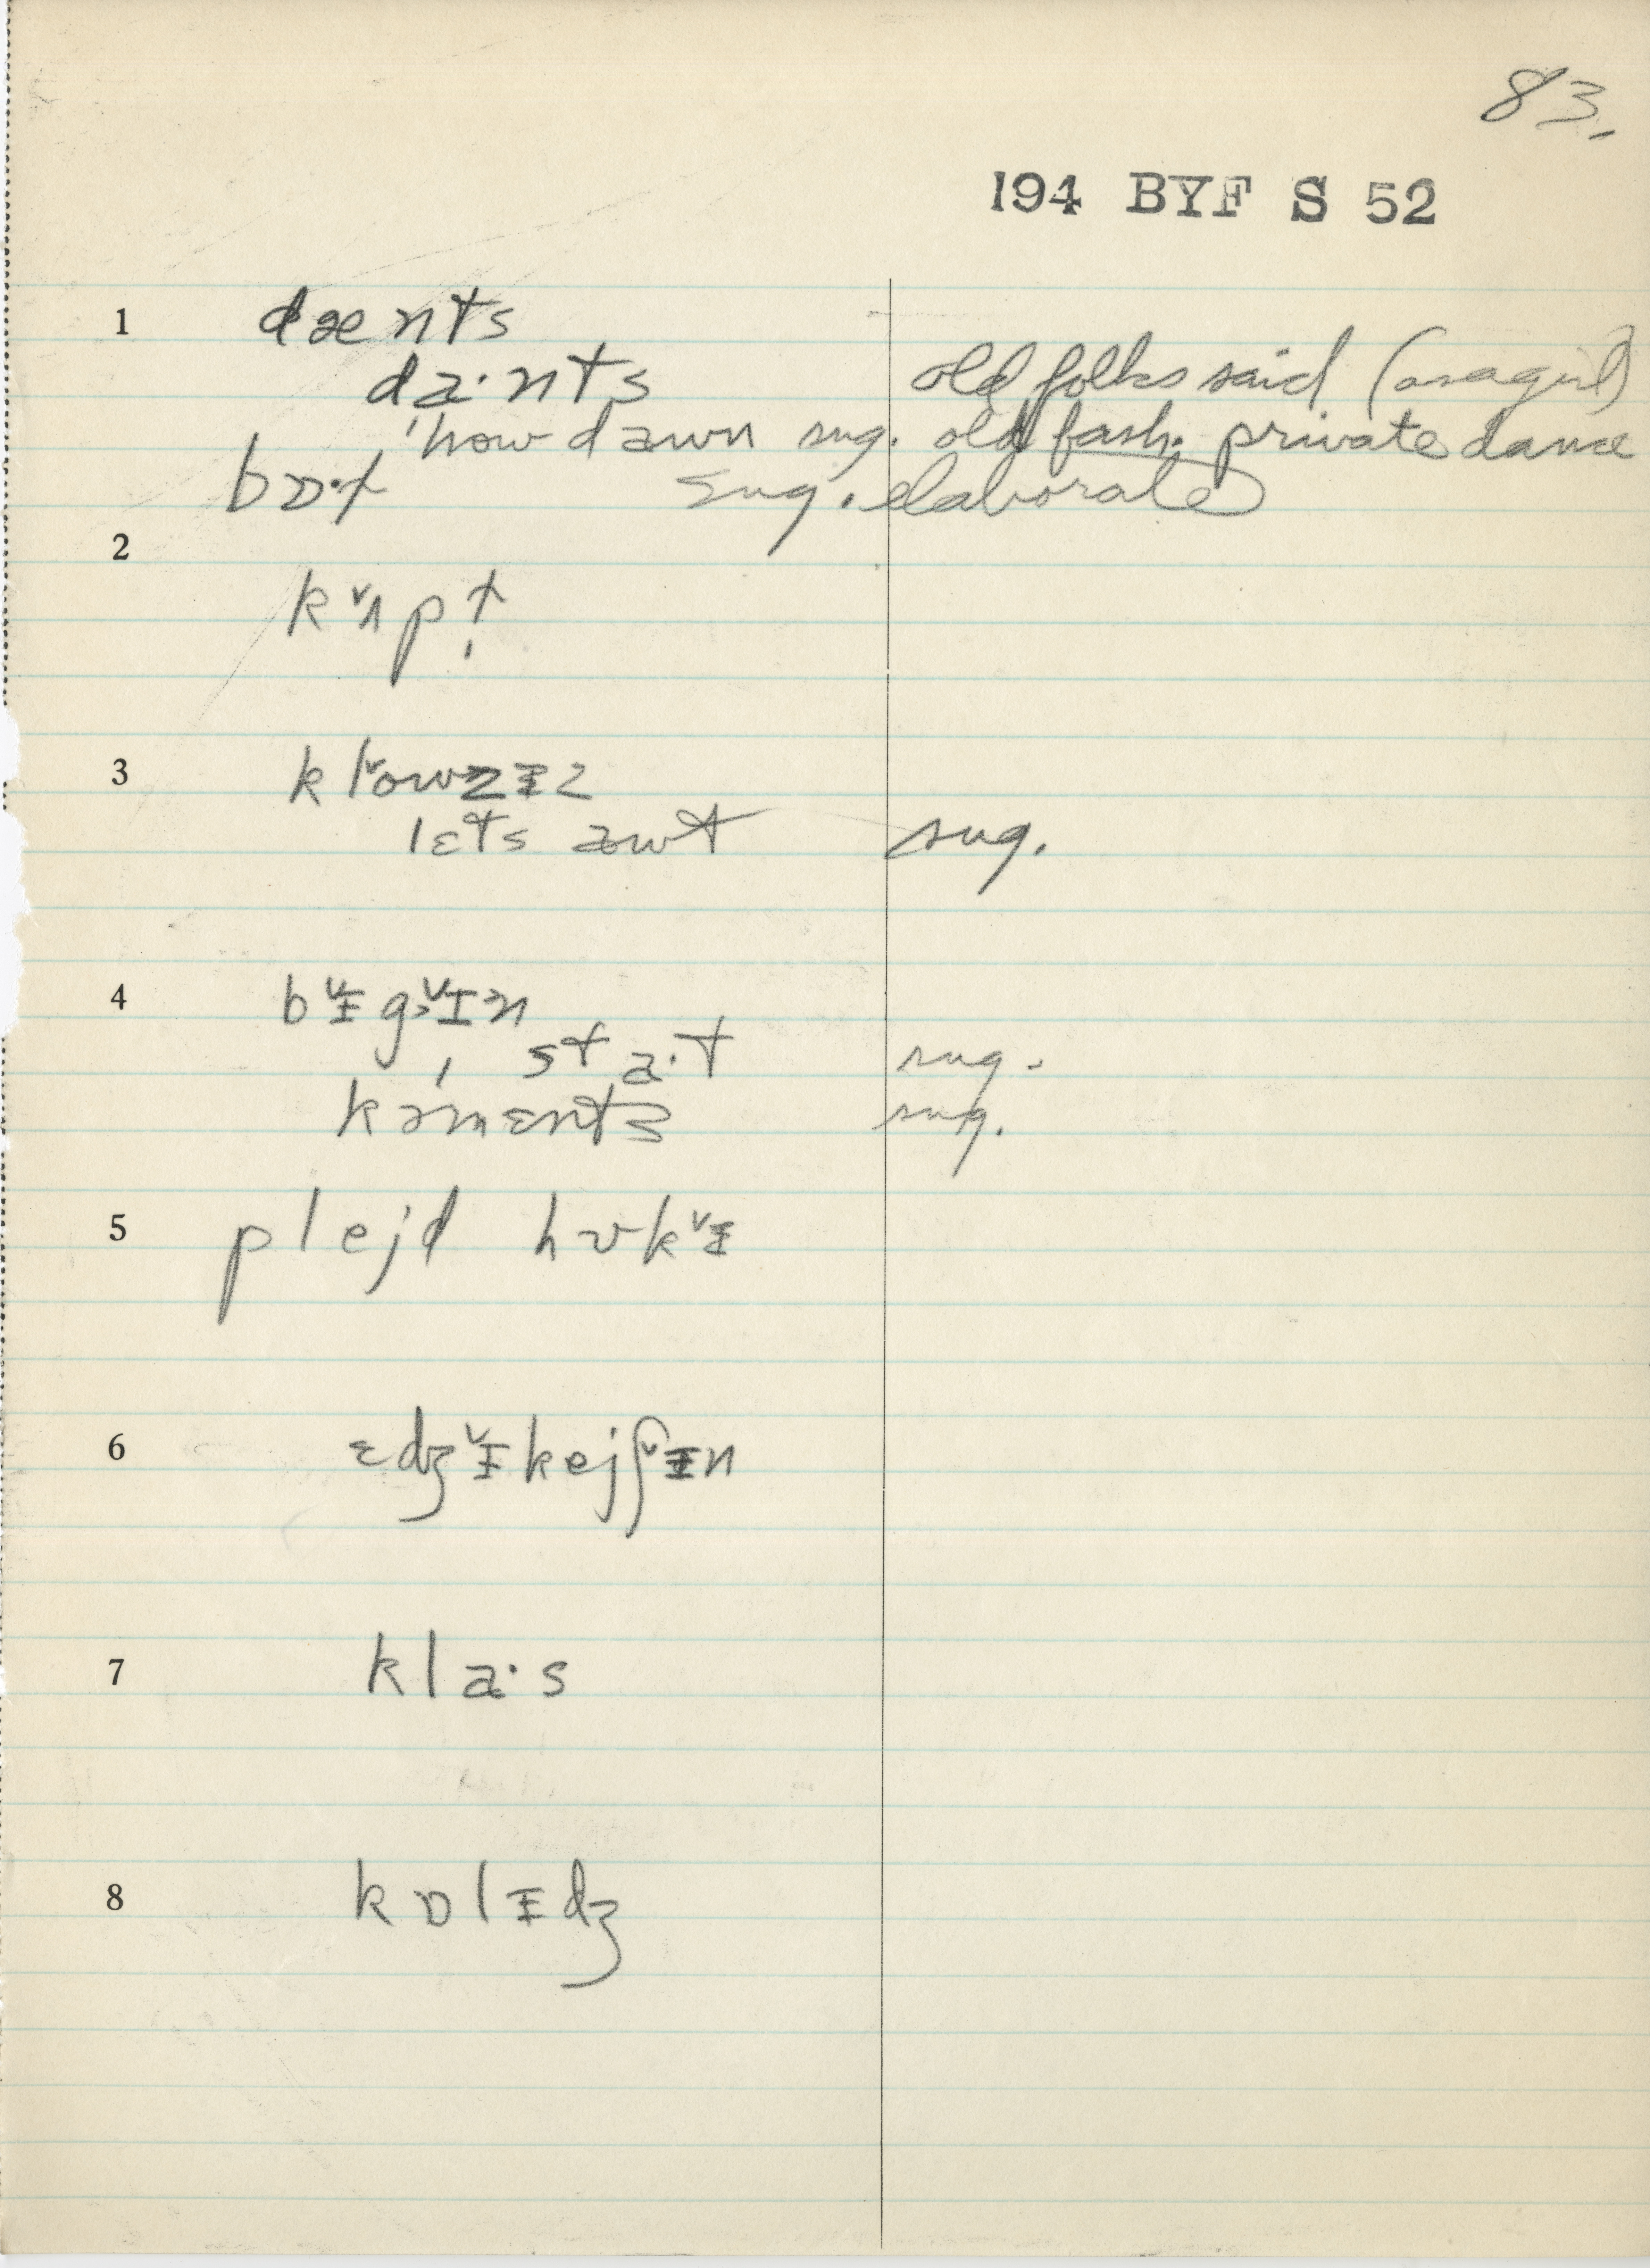 83.
194 BYF S 52
1 dænts
da·nts old folks said (as a girl)
'how dawn sug. old fash. private dance
bɒ·ɫ sug. elaborate
2
kᵛʌpt̩
3 klᵛowzᵻz
lɛts awt sug.
4 bᵛᵻg>ᵛɪn
sta·t sug.
kə'mɛnts sug.
5 plejd hʊkᵛᵻ
6 ɛdʒᵛᵻkejʃᵛᵻn
7 kla·s
8 kɒlᵻdʒ